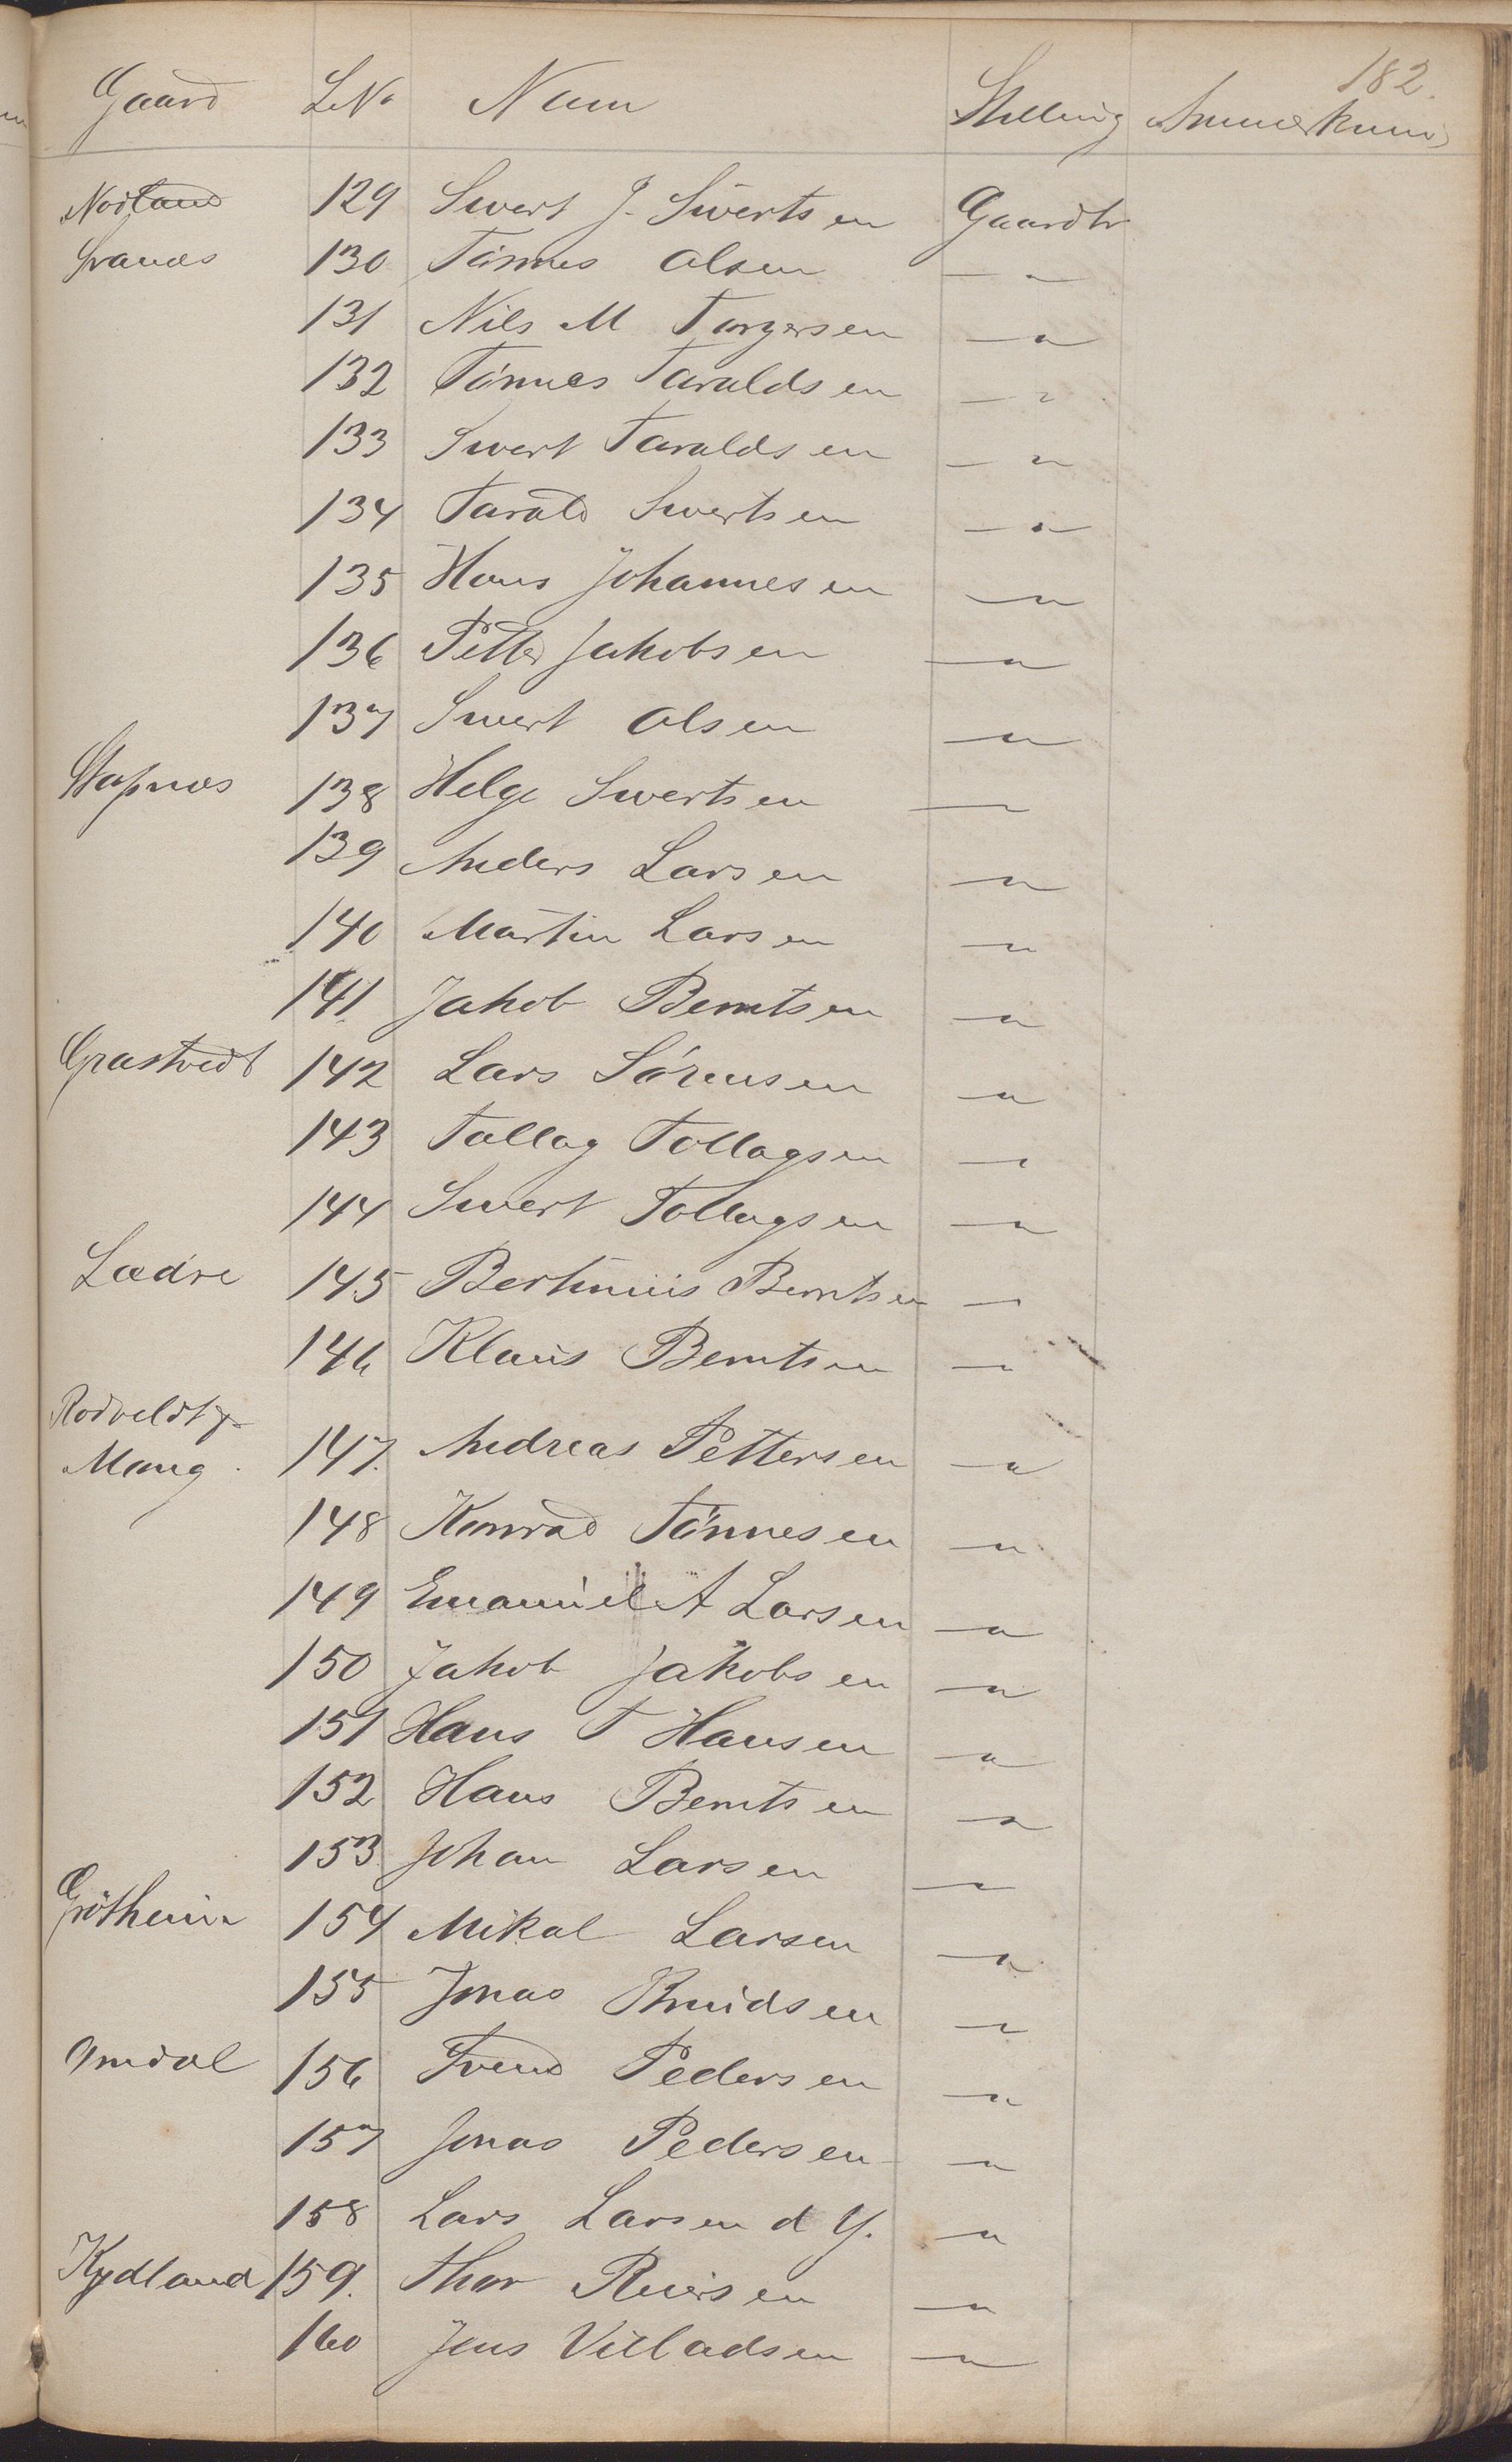 182.
Gaard LNo Navn Stilling Anmerkning
Nodland 129 Sivert J. Sivertsen Gaardbr
Svanes 130 Tønnes Olsen — " —
131 Nils M Torgersen — " —
132 Tønnes Taraldsen — " —
133 Sivert Taraldsen — " —
134 Tarald Sivertsen — " —
135 Hans Johannesen — " —
136 Petter Jakobsen — " —
137 Sivert Olsen — " —
Stapnæs 138 Helge Sivertsen — " —
139 Anders Larsen — " —
140 Martin Larsen — " —
141 Jakob Berntsen — " —
Grastvedt 142 Lars Sørensen — " —
143 Tollag Tollagsen — " —
144 Sivert Tollagsen — " —
Lædre 145 Bertinius Berntsen — " —
146 Klaus Berntsen — " —
Rodveldt &
Mong 147. Andreas Pettersen — " —
148 Konrad Tønnesen — " —
149 Emanuel A Larsen — " —
150 Jakob Jakobsen — " —
151 Hans T Hansen — " —
152 Hans Berntsen — " —
153 Johan Larsen — " —
Grøtheim 154 Mikal Larsen — " —
155 Jonas Knudsen — " —
Omdal 156 Trend Pedersen — " —
157 Jonas Pedersen — " —
158 Lars Larsen d Y. — " —
Kydland 159. Thor Reiersen — " —
160 Jens Villadsen — " —